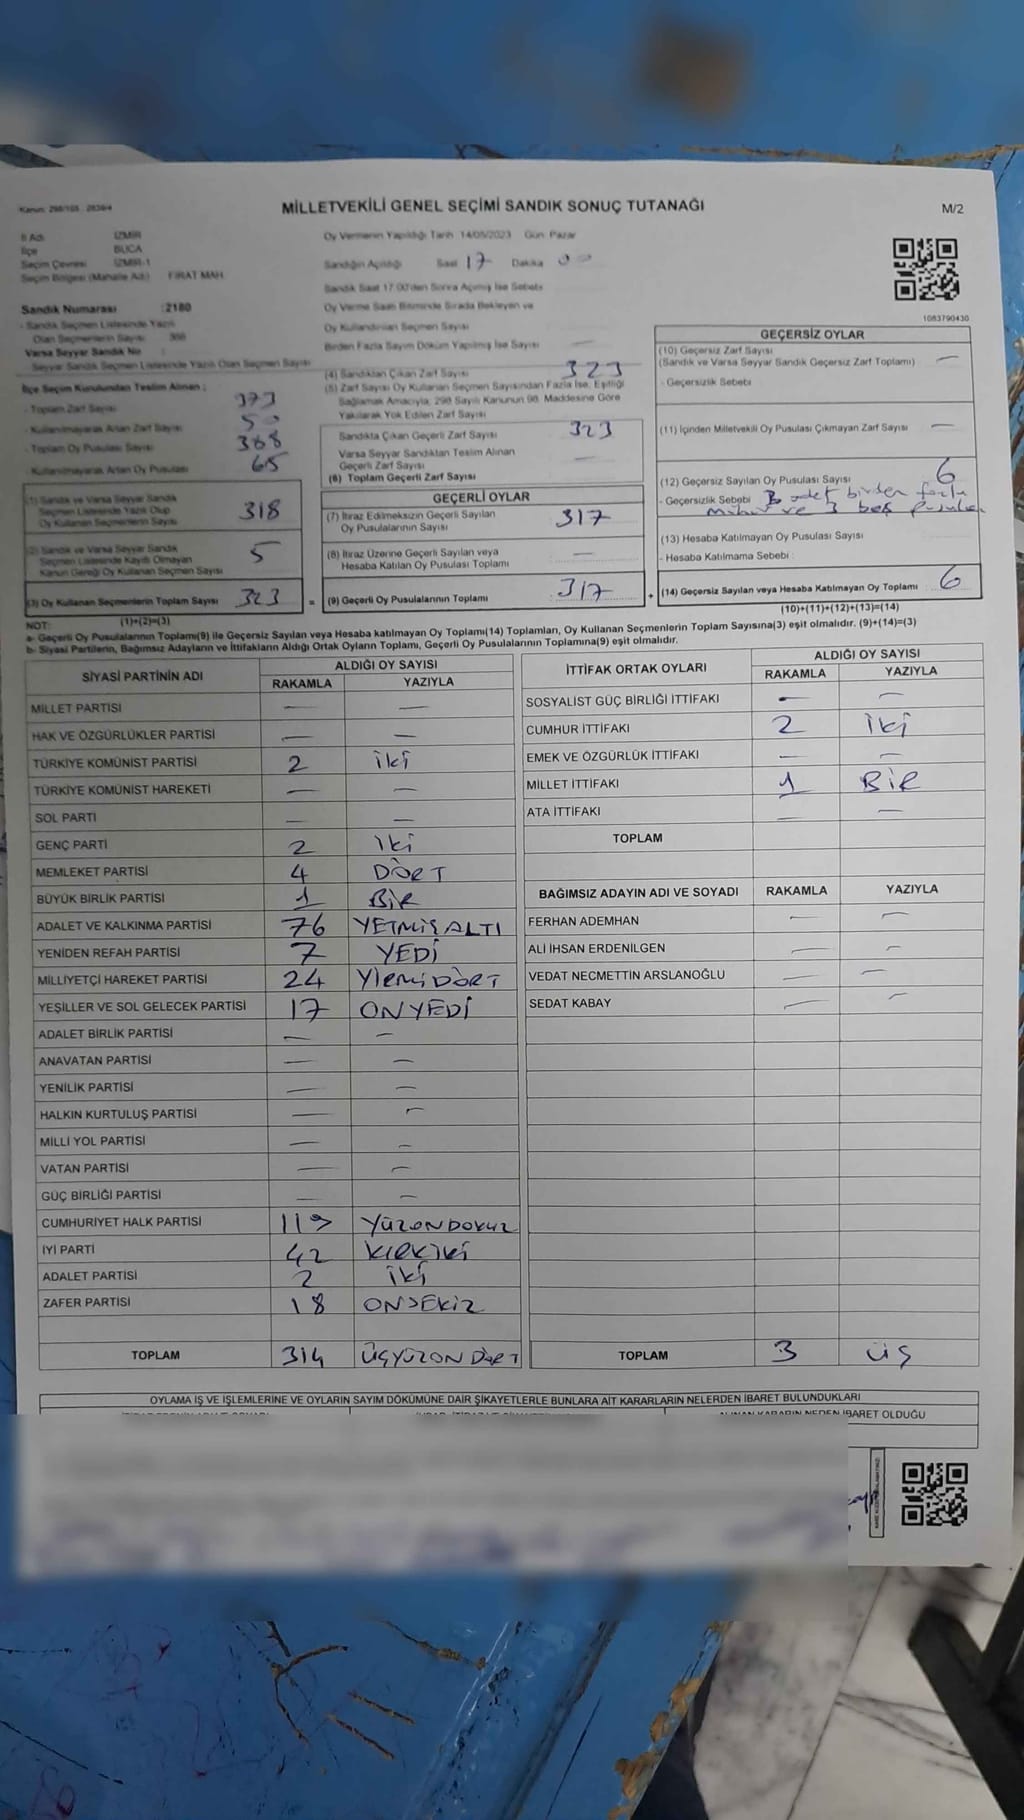 Kanun: 298/105 : 2839/4
MİLLETVEKİLİ GENEL SEÇİMİ SANDIK SONUÇ TUTANAĞI
M/2
İl Adı İZMİR
İlçe BUCA
Seçim Çevresi İZMİR-1
Seçim Bölgesi (Mahalle Adı) FIRAT MAH.
Sandık Numarası :2180
- Sandık Seçmen Listesinde Yazılı
Olan Seçmenlerin Sayısı 368
Varsa Seyyar Sandık No :
Seyyar Sandık Seçmen Listesinde Yazılı Olan Seçmen Sayısı
İlçe Seçim Kurulundan Teslim Alınan :
- Toplam Zarf Sayısı 373
- Kullanılmayarak Artan Zarf Sayısı 50
- Toplam Oy Pusulası Sayısı 388
- Kullanılmayarak Artan Oy Pusulası 65
(1) Sandık ve Varsa Seyyar Sandık
Seçmen Listesinde Yazılı Olup
Oy Kullanan Seçmenlerin Sayısı 318
(2) Sandık ve Varsa Seyyar Sandık
Seçmen Listesinde Kayıtlı Olmayan
Kanun Gereği Oy Kullanan Seçmen Sayısı 5
(3) Oy Kullanan Seçmenlerin Toplam Sayısı 323
(1)+(2)=(3)
Oy Vermenin Yapıldığı Tarih :14/05/2023 Gün: Pazar
Sandığın Açıldığı Saat 17 Dakika 00
Sandık Saat 17:00'den Sonra Açılmış İse Sebebi
Oy Verme Saati Bitiminde Sırada Bekleyen ve
Oy Kullandırılan Seçmen Sayısı
Birden Fazla Sayım Döküm Yapılmış İse Sayısı —
(4) Sandıktan Çıkan Zarf Sayısı 323
(5) Zarf Sayısı Oy Kullanan Seçmen Sayısından Fazla İse, Eşitliği
Sağlamak Amacıyla, 298 Sayılı Kanunun 98. Maddesine Göre
Yakılarak Yok Edilen Zarf Sayısı
Sandıkta Çıkan Geçerli Zarf Sayısı 323
Varsa Seyyar Sandıktan Teslim Alınan
Geçerli Zarf Sayısı —
(6) Toplam Geçerli Zarf Sayısı
GEÇERLİ OYLAR
(7) İtiraz Edilmeksizin Geçerli Sayılan
Oy Pusulalarının Sayısı 317
(8) İtiraz Üzerine Geçerli Sayılan veya
Hesaba Katılan Oy Pusulası Toplamı —
= (9) Geçerli Oy Pusulalarının Toplamı 317
1083790430
GEÇERSİZ OYLAR
(10) Geçersiz Zarf Sayısı
(Sandık ve Varsa Seyyar Sandık Geçersiz Zarf Toplamı) —
- Geçersizlik Sebebi
(11) İçinden Milletvekili Oy Pusulası Çıkmayan Zarf Sayısı —
(12) Geçersiz Sayılan Oy Pusulası Sayısı 6
- Geçersizlik Sebebi 3 adet birden fazla
mühür ve 3 boş pusula
(13) Hesaba Katılmayan Oy Pusulası Sayısı
- Hesaba Katılmama Sebebi :
+ (14) Geçersiz Sayılan veya Hesaba Katılmayan Oy Toplamı 6
(10)+(11)+(12)+(13)=(14)
NOT:
a- Geçerli Oy Pusulalarının Toplamı(9) ile Geçersiz Sayılan veya Hesaba katılmayan Oy Toplamı(14) Toplamları, Oy Kullanan Seçmenlerin Toplam Sayısına(3) eşit olmalıdır. (9)+(14)=(3)
b- Siyasi Partilerin, Bağımsız Adayların ve İttifakların Aldığı Ortak Oyların Toplamı, Geçerli Oy Pusulalarının Toplamına(9) eşit olmalıdır.
SİYASİ PARTİNİN ADI ALDIĞI OY SAYISI
RAKAMLA YAZIYLA
MİLLET PARTİSİ — —
HAK VE ÖZGÜRLÜKLER PARTİSİ — —
TÜRKİYE KOMÜNİST PARTİSİ 2 iki
TÜRKİYE KOMÜNİST HAREKETİ — —
SOL PARTİ — —
GENÇ PARTİ 2 iki
MEMLEKET PARTİSİ 4 DÖRT
BÜYÜK BİRLİK PARTİSİ 1 BİR
ADALET VE KALKINMA PARTİSİ 76 YETMİŞALTI
YENİDEN REFAH PARTİSİ 7 YEDİ
MİLLİYETÇİ HAREKET PARTİSİ 24 YİRMİDÖRT
YEŞİLLER VE SOL GELECEK PARTİSİ 17 ONYEDİ
ADALET BİRLİK PARTİSİ — —
ANAVATAN PARTİSİ — —
YENİLİK PARTİSİ — —
HALKIN KURTULUŞ PARTİSİ — —
MİLLİ YOL PARTİSİ — —
VATAN PARTİSİ — —
GÜÇ BİRLİĞİ PARTİSİ — —
CUMHURİYET HALK PARTİSİ 119 YÜZONDOKUZ
İYİ PARTİ 42 KIRKİKİ
ADALET PARTİSİ 2 iki
ZAFER PARTİSİ 18 ONSEKİZ
TOPLAM 314 ÜÇYÜZON DÖRT
İTTİFAK ORTAK OYLARI ALDIĞI OY SAYISI
RAKAMLA YAZIYLA
SOSYALİST GÜÇ BİRLİĞİ İTTİFAKI — —
CUMHUR İTTİFAKI 2 iki
EMEK VE ÖZGÜRLÜK İTTİFAKI — —
MİLLET İTTİFAKI 1 BİR
ATA İTTİFAKI — —
TOPLAM
BAĞIMSIZ ADAYIN ADI VE SOYADI RAKAMLA YAZIYLA
FERHAN ADEMHAN — —
ALİ İHSAN ERDENİLGEN — —
VEDAT NECMETTİN ARSLANOĞLU — —
SEDAT KABAY — —
TOPLAM 3 ÜÇ
OYLAMA İŞ VE İŞLEMLERİNE VE OYLARIN SAYIM DÖKÜMÜNE DAİR ŞİKAYETLERLE BUNLARA AİT KARARLARIN NELERDEN İBARET BULUNDUKLARI
ALINAN KARARIN NEDEN İBARET OLDUĞU